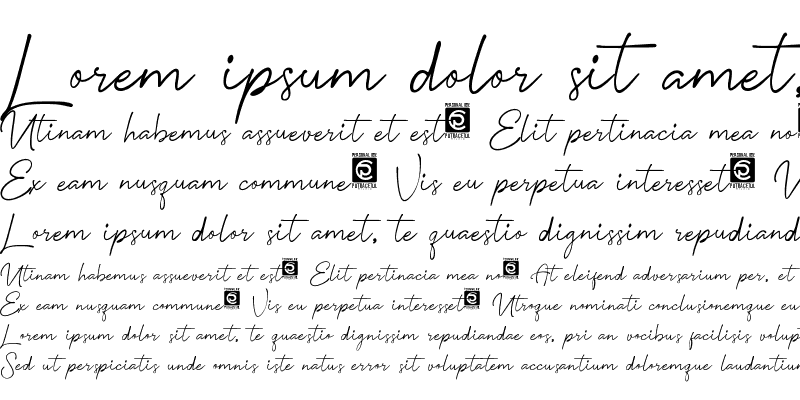 Lorem ipsum dolor sit amet,
Utinam habemus assueverit et est PERSONAL USE PUTRACETOL Elit pertinacia mea no
Ex eam nusquam commune PERSONAL USE PUTRACETOL Vis eu perpetua interesset PERSONAL USE PUTRACETOL V
Lorem ipsum dolor sit amet, te quaestio dignissim repudiand
Utinam habemus assueverit et est Elit pertinacia mea no At eleifend adversarium per, et
Ex eam nusquam commune Vis eu perpetua interesset Utroque nominati conclusionemque eu
Lorem ipsum dolor sit amet, te quaestio dignissim repudiandae eos, pri an vocibus facilisis volup
Sed ut perspiciatis unde omnis iste natus error sit voluptatem accusantium doloremque laudantium